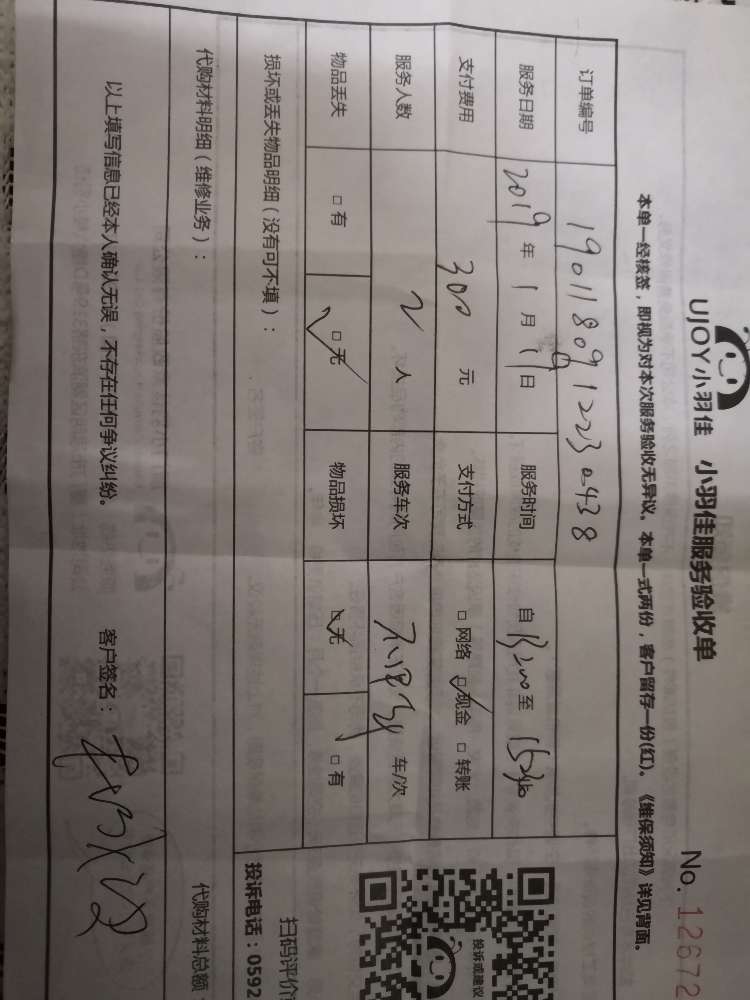 UJOY小羽佳 小羽佳服务验收单
No. 12672
本单一经核签，即视为对本次服务验收无异议。本单一式两份，客户留存一份(红)。《维保须知》详见背面。
订单编号 1901180912230438
服务日期 2019 年 1 月 19 日 服务时间 自 13:00 至
支付费用 300 元 支付方式 □ 网络 □ 现金 □ 转账
服务人数 2 人 服务车次 车/次
物品丢失 □ 有 □ 无 物品损坏 □ 无 □ 有
损坏或丢失物品明细（没有可不填）：
代购材料明细（维修业务）：
代购材料总额
以上填写信息已经本人确认无误，不存在任何争议纠纷。 客户签名：
投诉或建议
扫码评价
投诉电话：0592